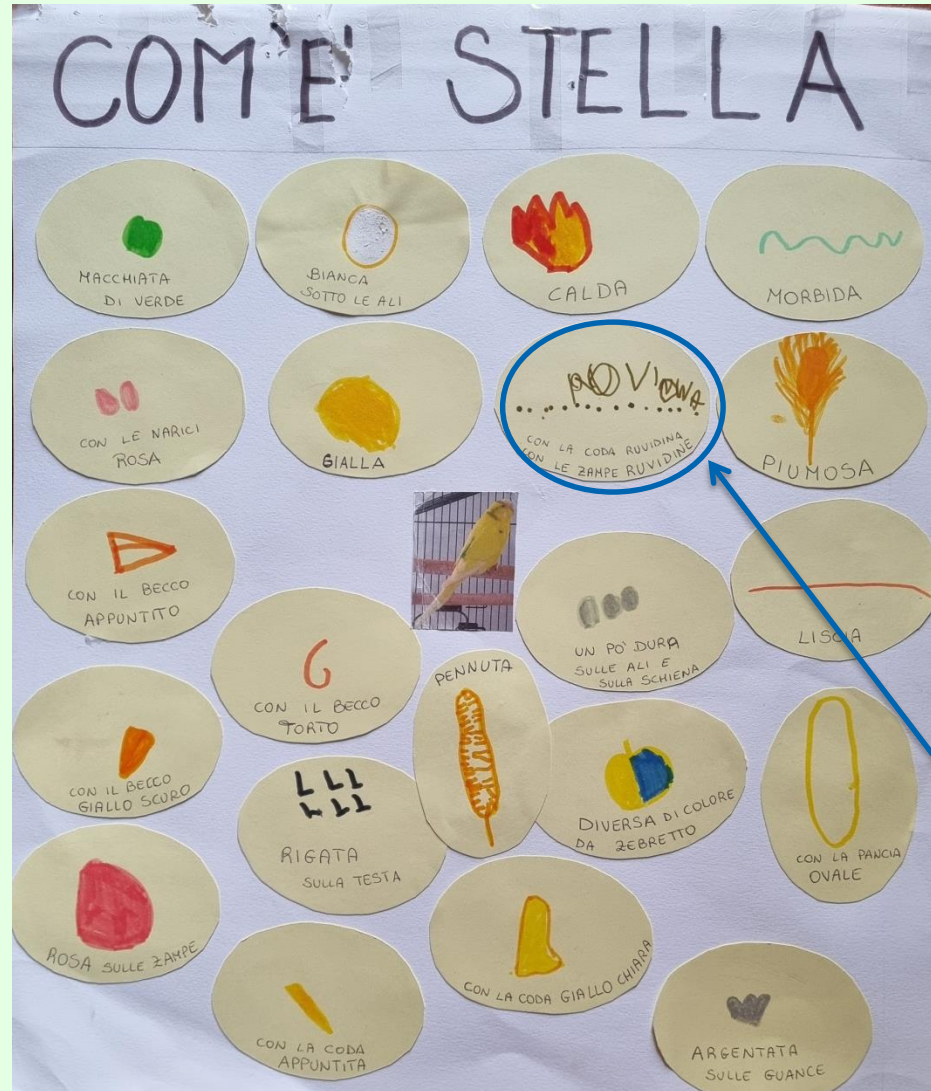 COM'E' STELLA
MACCHIATA
DI VERDE
BIANCA
SOTTO LE ALI
CALDA
MORBIDA
CON LE NARICI
ROSA
GIALLA
CON LA CODA RUVIDINA
CON LE ZAMPE RUVIDINE
PIUMOSA
CON IL BECCO
APPUNTITO
CON IL BECCO
TORTO
PENNUTA
UN PO' DURA
SULLE ALI E
SULLA SCHIENA
LISCIA
CON IL BECCO
GIALLO SCURO
RIGATA
SULLA TESTA
DIVERSA DI COLORE
DA ZEBRETTO
CON LA PANCIA
OVALE
ROSA SULLE ZAMPE
CON LA CODA
APPUNTITA
CON LA CODA GIALLO CHIARA
ARGENTATA
SULLE GUANCE